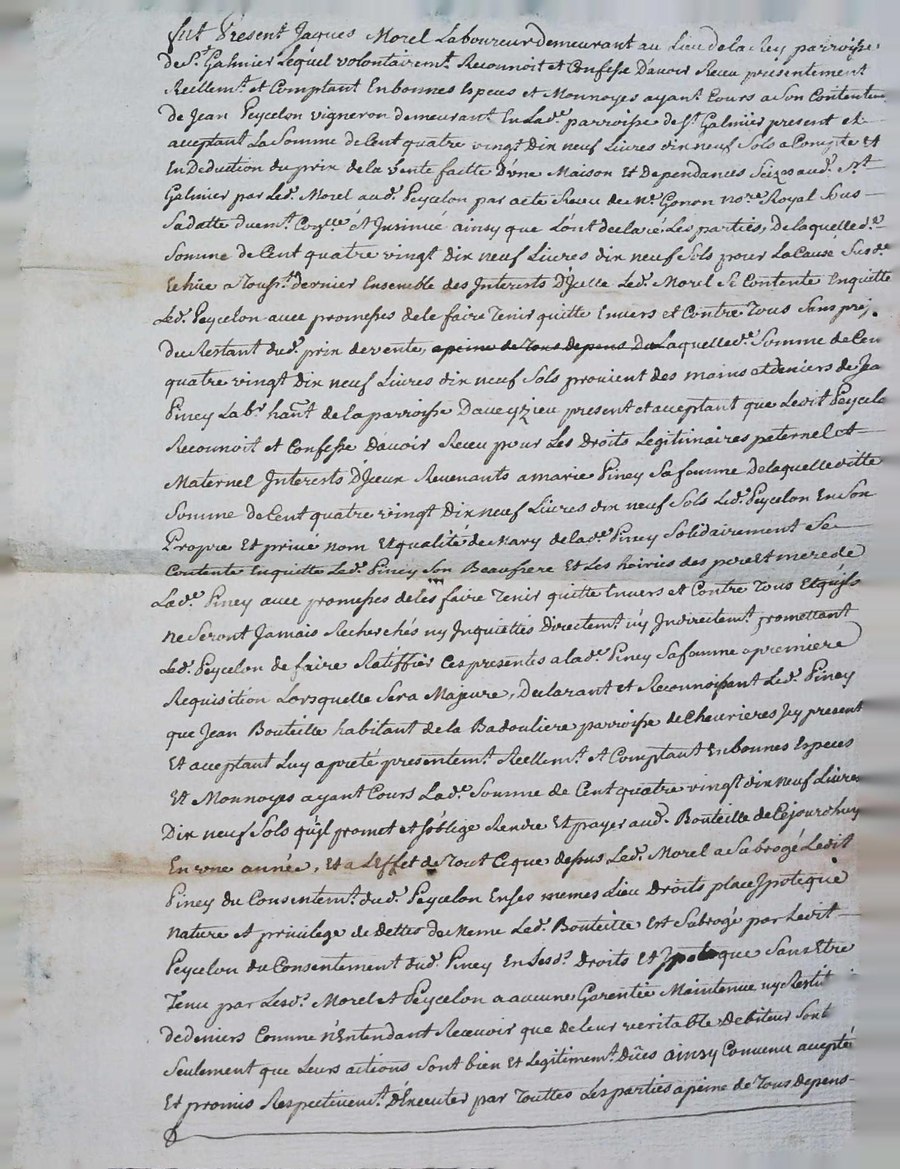 fut Present Jaques Morel Laboureur demeurant au Lieu de la Rey parroisse
de St. Galmier Lequel volontairemt. Reconnoit et Confesse D'avoir Receu presentement
Reellemt. et Comptant En bonnes Especes et Monnoyes ayant Cours a Son Contentem
de Jean Peycelon vigneron demeurant En Lade. parroisse de St. Galmier present et
acceptant La Somme de Cent quatre vingt Dix neuf Livres dix neuf Sols a Compte et
En Deduction du prix de la vente faitte D'vne Maison Et Dependances Seizes aud. St.
Galmier par Led. Morel aud. Peycelon par acte Receu de Me. Gonon nore. Royal Sous
Sa datte duemt. Et Insinué ainsy que L'ont declaré Les parties, De laquelle de.
Somme de Cent quatre vingt Dix neuf Livres dix neuf Sols pour La Cause Susde.
Echüe a Toust. dernier Ensemble des Interests D'Jcelle Led. Morel Se Contente Enquitte
Led. Peycelon avec promesses de le faire Tenir quitte Envers et Contre Tous Sans prej.
Du Restant dud. prix de vente, a peine de Tous depens Du Laquellede. Somme de Cen
quatre vingt Dix neuf Livres dix neuf Sols provient des mains et deniers de Jea
Piney Labr. hant. de la parroisse Daveyzieu present et acceptant que Ledit Peycelo
Reconnoit et Confesse Davoir Receu pour Les Droits Legitimaires paternel et
Maternel Interests D'Jceux Revenants a marie Piney Sa femme de laquelle ditte
Somme de Cent quatre vingt Dix neuf Livres dix neuf Sols Led. Peycelon En Son
Propre Et privé nom Et qualité de Mary de lade. Piney Solidairement Se
Contente Enquitte Led. Piney Son Beaufrere Et Les hoiries des pere et mere de
Lade. Piney avec promesses de les faire Tenir quitte Envers et Contre Tous Et qu'jls
ne Seront Jamais Recherchés ny Jnquiettes Directemt. ny Jndirectemt. promettant
Led. Peycelon de faire Ratiffier Ces presentes a lade. Piney Sa femme a premiere
Requisition Lorsquelle Sera Majeure, Declarant et Reconnoissant Led. Piney
que Jean Bouteille habitant de la Badouliere parroisse de Chevrieres Jcy present
Et acceptant Luy a preté presentemt. Reellemt. Et Comptant En bonnes Especes
Et Monnoyes ayant Cours Lade. Somme de Cent quatre vingt dix neuf Livres
Dix neuf Sols qu'jl promet et s'oblige Rendre Et payer aud. Bouteille de Cejourd'huy
En vne année, Et a L'Effet de Tout Ce que dessus Led. Morel a Subrogé Ledit
Piney du Consentemt. dud. Peycelon En Ses memes Lieu Droits place Jpoteque
Nature Et privilege de dettes de Meme Led. Bouteille Est Subrogé par Ledit
Peycelon du Consentement dud. Piney En Sesd. Droits Et Jpoteque Sans Etre
Tenu par Lesd. Morel et Peycelon a aucune Garentie Maintenue ny Restit
De deniers Comme n'Entendant Recevoir que de leur veritable Debiteur Sont
Seulement que Leurs actions Sont bien Et Legitimemt. Dües ainsy Convenu accepté
Et promis Respectivemt. D'Executer par Touttes Les parties a peine de Tous depens